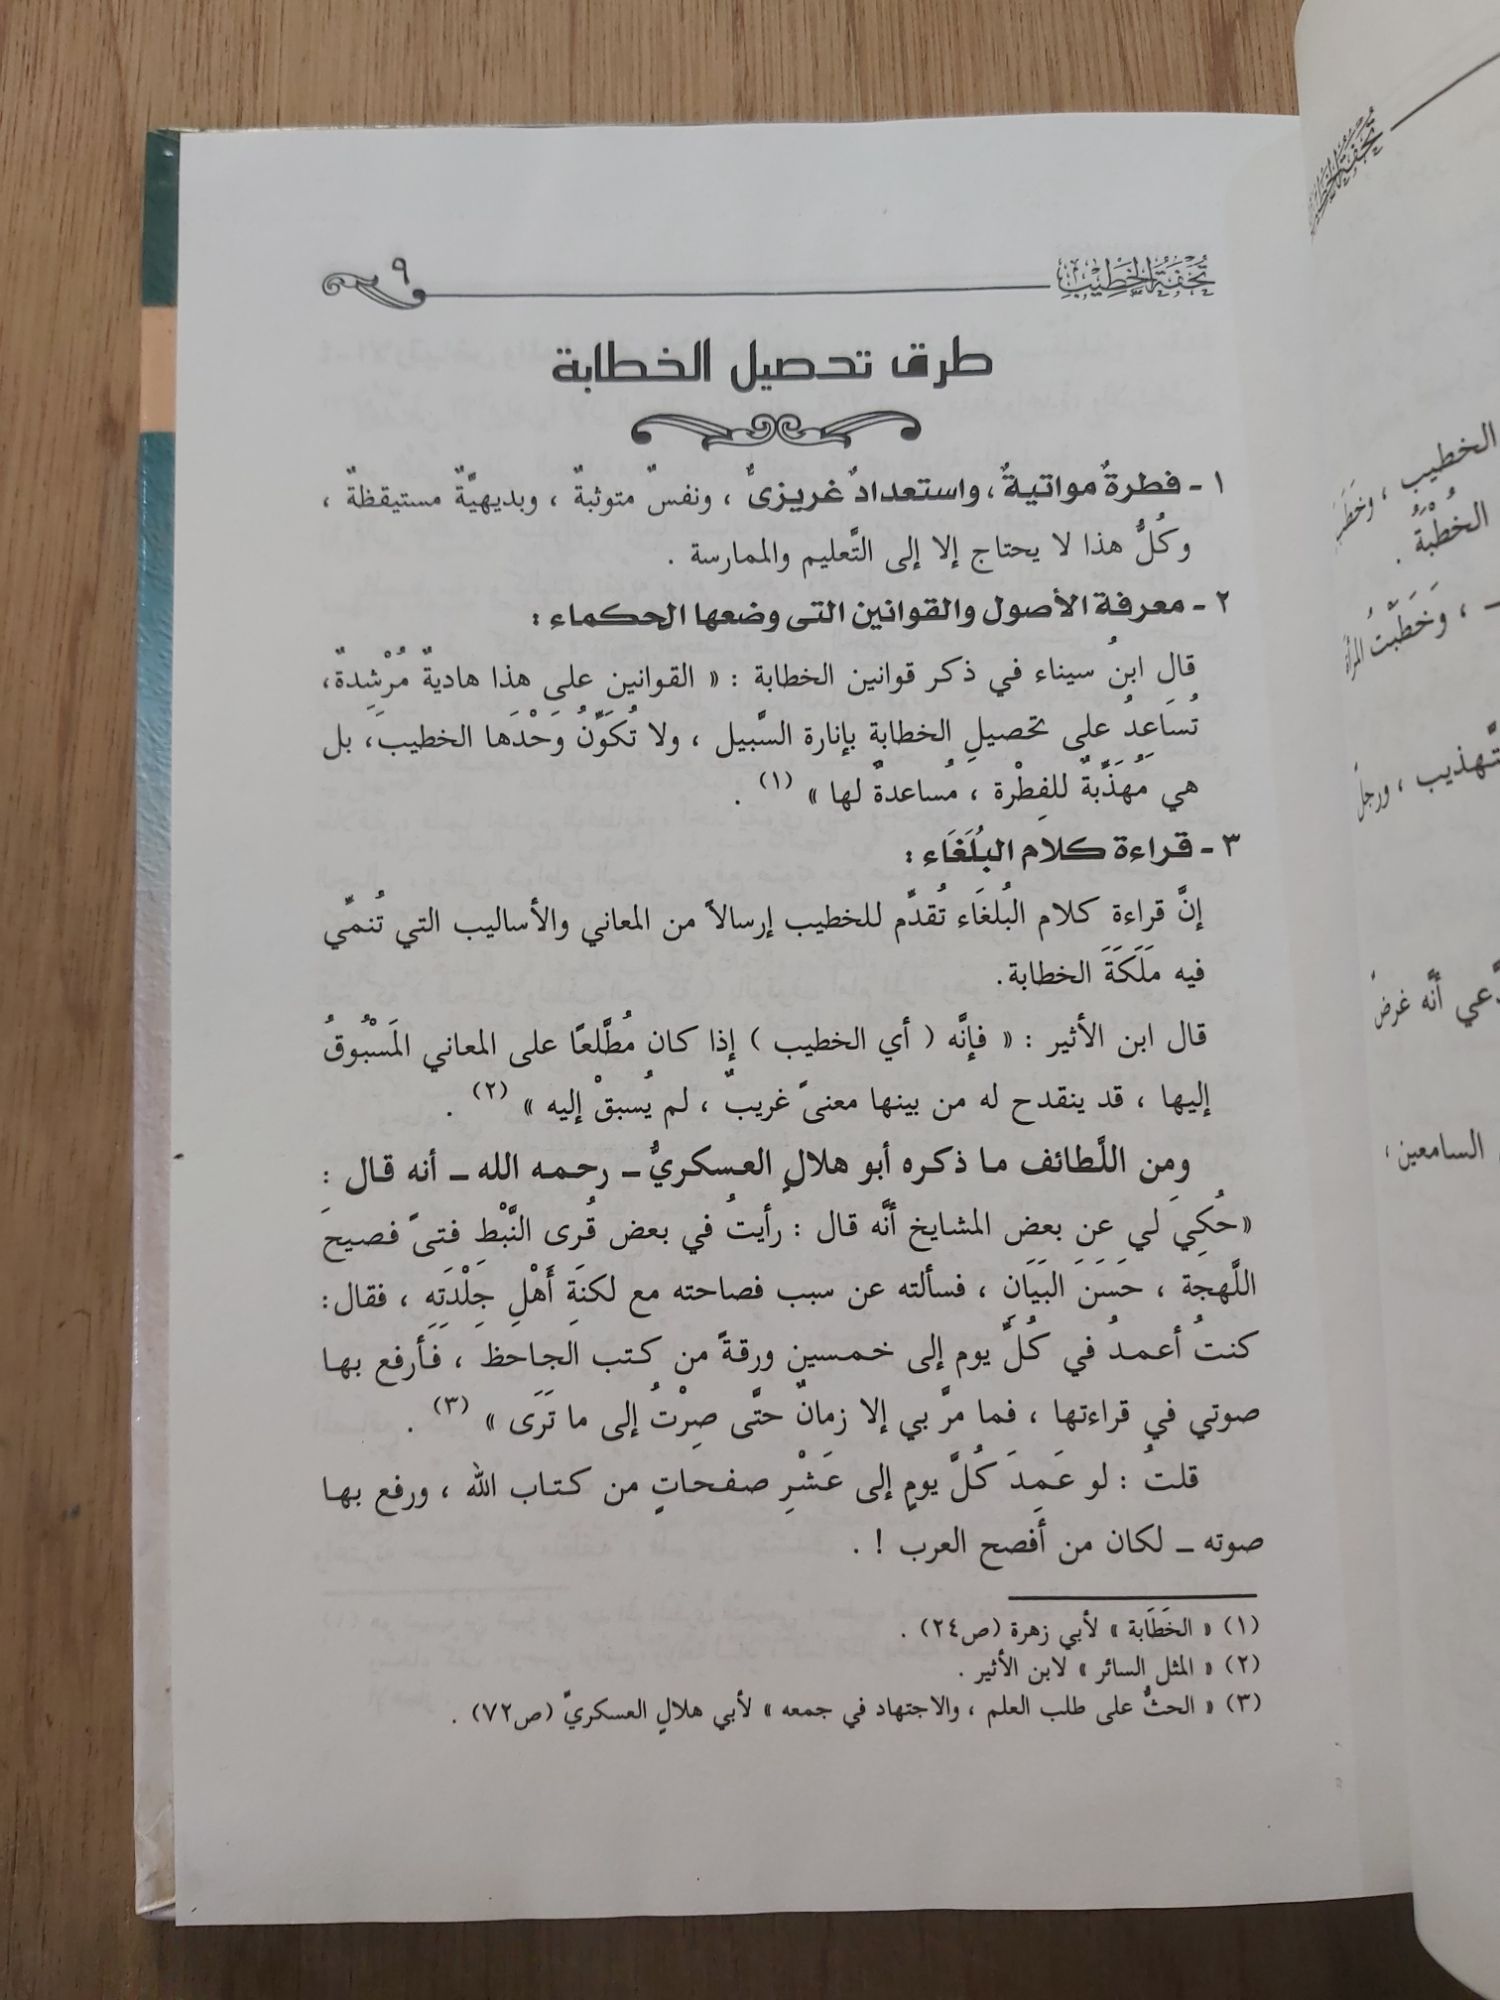 تُحْفَةُ الْخَطِيْبِ
٩
طرق تحصيل الخطابة
١ - فطرةٌ مواتيةٌ ، واستعدادٌ غريزىٌّ ، ونفسٌ متوثبةٌ ، وبديهيَّةٌ مستيقظةٌ ،
وكُلُّ هذا لا يحتاج إلا إلى التَّعليم والممارسة .
٢ - معرفة الأصول والقوانين التى وضعها الحكماء :
قال ابنُ سيناء في ذكر قوانين الخطابة : « القوانين على هذا هاديةٌ مُرْشِدةٌ،
تُسَاعِدُ على تحصيلِ الخطابة بإنارة السَّبيل ، ولا تُكَوِّنُ وَحْدَها الخطيبَ، بل
هي مُهَذِّبةٌ للفِطْرة ، مُساعدةٌ لها » (١) .
٣ - قراءة كلام البُلَغَاء :
إنَّ قراءة كلام البُلغَاء تُقدَّم للخطيب إرسالاً من المعاني والأساليب التي تُنمِّي
فيه مَلَكَةَ الخطابة.
قال ابن الأثير : « فإنَّه ( أي الخطيب ) إذا كان مُطَّلعًا على المعاني المَسْبُوقُ
إليها ، قد ينقدح له من بينها معنىً غريبٌ ، لم يُسبقْ إليه » (٢) .
ومِن اللَّطائف ما ذكره أبو هلالٍ العسكريُّ ــ رحمه الله ــ أنه قال :
«حُكِيَ لي عن بعض المشايخ أنَّه قال : رأيتُ في بعض قُرى النَّبْطِ فتىً فصيحَ
اللَّهجة ، حَسَنَ البَيَانِ ، فسألته عن سبب فصاحته مع لكنَةِ أَهْلِ جِلْدَتِهِ ، فقال:
كنتُ أعمدُ في كُلِّ يوم إلى خمسين ورقةً من كتب الجاحظ ، فأرفع بها
صوتي في قراءتها ، فما مرَّ بي إلا زمانٌ حتَّى صِرْتُ إلى ما تَرَى » (٣) .
قلتُ : لو عَمِدَ كُلَّ يومٍ إلى عَشْرِ صفحاتٍ من كتاب الله ، ورفع بها
صوته ــ لكان من أفصح العرب ! .
(١) « الخَطَابة » لأبي زهرة (ص٢٤) .
(٢) « المثل السائر » لابن الأثير .
(٣) « الحثُّ على طلب العلم ، والاجتهاد في جمعه » لأبي هلالٍ العسكريِّ (ص٧٢) .
الخطيب ، وخَطَبَ
الخُطْبَةُ .
، وَخَطَبْتُ المرأة
تَّهذيب ، ورجلٌ
أنَّه غرضٌ
السامعين ،